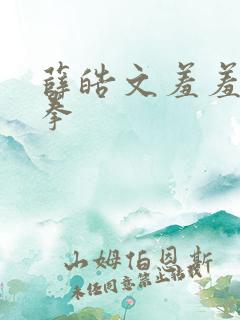 薛皓文羞羞
拳
山姆伯恩斯
未经同意禁止转载